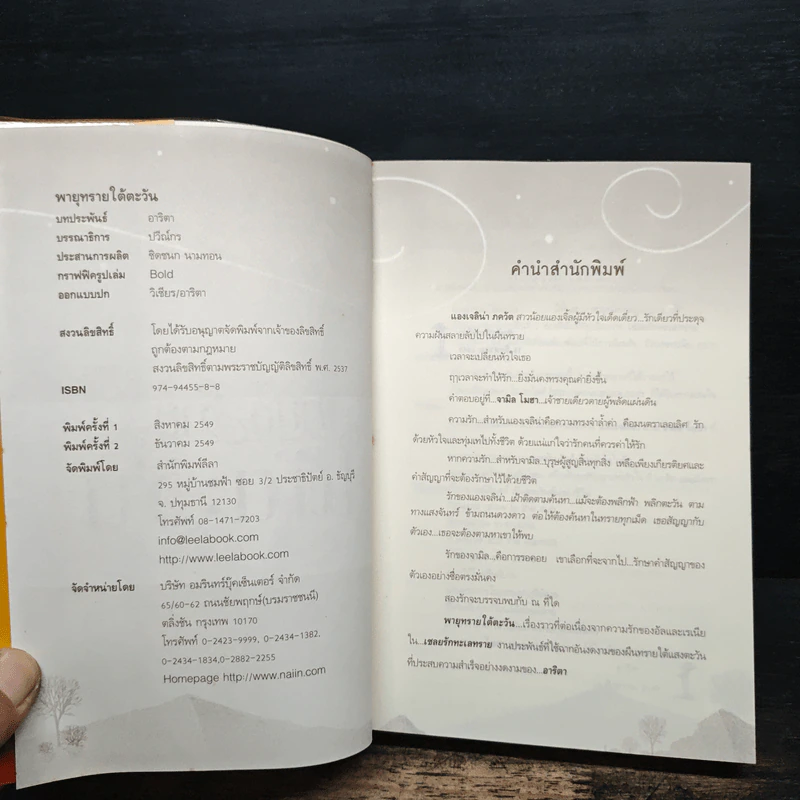 พายุทรายใต้ตะวัน
บทประพันธ์ อาริตา
บรรณาธิการ ปวีณ์กร
ประสานการผลิต ชิดชนก นามทอน
กราฟฟิครูปเล่ม Bold
ออกแบบปก วิเชียร/อาริตา
สงวนลิขสิทธิ์ โดยได้รับอนุญาตจัดพิมพ์จากเจ้าของลิขสิทธิ์
ถูกต้องตามกฎหมาย
สงวนลิขสิทธิ์ตามพระราชบัญญัติลิขสิทธิ์ พ.ศ. 2537
ISBN 974-94455-8-8
พิมพ์ครั้งที่ 1 สิงหาคม 2549
พิมพ์ครั้งที่ 2 ธันวาคม 2549
จัดพิมพ์โดย สำนักพิมพ์ลีลา
295 หมู่บ้านชมฟ้า ซอย 3/2 ประชาธิปัตย์ อ. ธัญบุรี
จ. ปทุมธานี 12130
โทรศัพท์ 08-1471-7203
info@leelabook.com
http://www.leelabook.com
จัดจำหน่ายโดย บริษัท อมรินทร์บุ๊คเซ็นเตอร์ จำกัด
65/60-62 ถนนชัยพฤกษ์(บรมราชชนนี)
ตลิ่งชัน กรุงเทพ 10170
โทรศัพท์ 0-2423-9999, 0-2434-1382,
0-2434-1834,0-2882-2255
Homepage http://www.naiin.com
คำนำสำนักพิมพ์
แองเจลิน่า ภควัต สาวน้อยแองเจิ้ลผู้มีหัวใจเด็ดเดี่ยว...รักเดียวที่ประดุจ
ความฝันสลายลับไปในผืนทราย
เวลาจะเปลี่ยนหัวใจเธอ
ฤาเวลาจะทำให้รัก...ยิ่งมั่นคงทรงคุณค่ายิ่งขึ้น
คำตอบอยู่ที่...จามิล โมฮา...เจ้าชายเดียวดายผู้พลัดแผ่นดิน
ความรัก...สำหรับแองเจลิน่าคือความทรงจำล้ำค่า คือมนตราเลอเลิศ รัก
ด้วยหัวใจและทุ่มเทไปทั้งชีวิต ด้วยแน่แก่ใจว่ารักคนที่ควรค่าให้รัก
หากความรัก...สำหรับจามิล-บุรุษผู้สูญสิ้นทุกสิ่ง เหลือเพียงเกียรติยศและ
คำสัญญาที่จะต้องรักษาไว้ได้ด้วยชีวิต
รักของแองเจลิน่า...เฝ้าติดตามค้นหา...แม้จะต้องพลิกฟ้า พลิกตะวัน ตาม
ทางแสงจันทร์ ข้ามถนนดวงดาว ต่อให้ต้องค้นหาในทรายทุกเม็ด เธอสัญญากับ
ตัวเอง...เธอจะต้องตามหาเขาให้พบ
รักของจามิล...คือการรอคอย เขาเลือกที่จะจากไป...รักษาคำสัญญาของ
ตัวเองอย่างซื่อตรงมั่นคง
สองรักจะบรรจบพบกัน ณ ที่ใด
พายุทรายใต้ตะวัน...เรื่องราวที่ต่อเนื่องจากความรักของอัลและเรเนีย
ใน...เชลยรักทะเลทราย งานประพันธ์ที่ใช้ฉากอันงดงามของผืนทรายใต้แสงตะวัน
ที่ประสบความสำเร็จอย่างงดงามของ...อาริตา